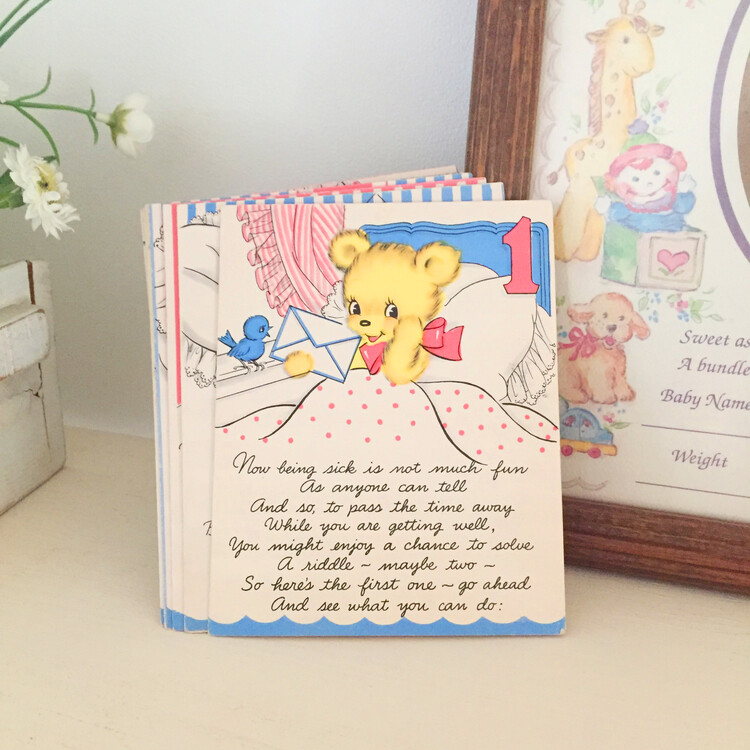 1
Now being sick is not much fun
As anyone can tell
And so, to pass the time away
While you are getting well,
You might enjoy a chance to solve
A riddle ~ maybe two ~
So here's the first one ~ go ahead
And see what you can do:
Sweet as
A bundle
Baby Name
Weight